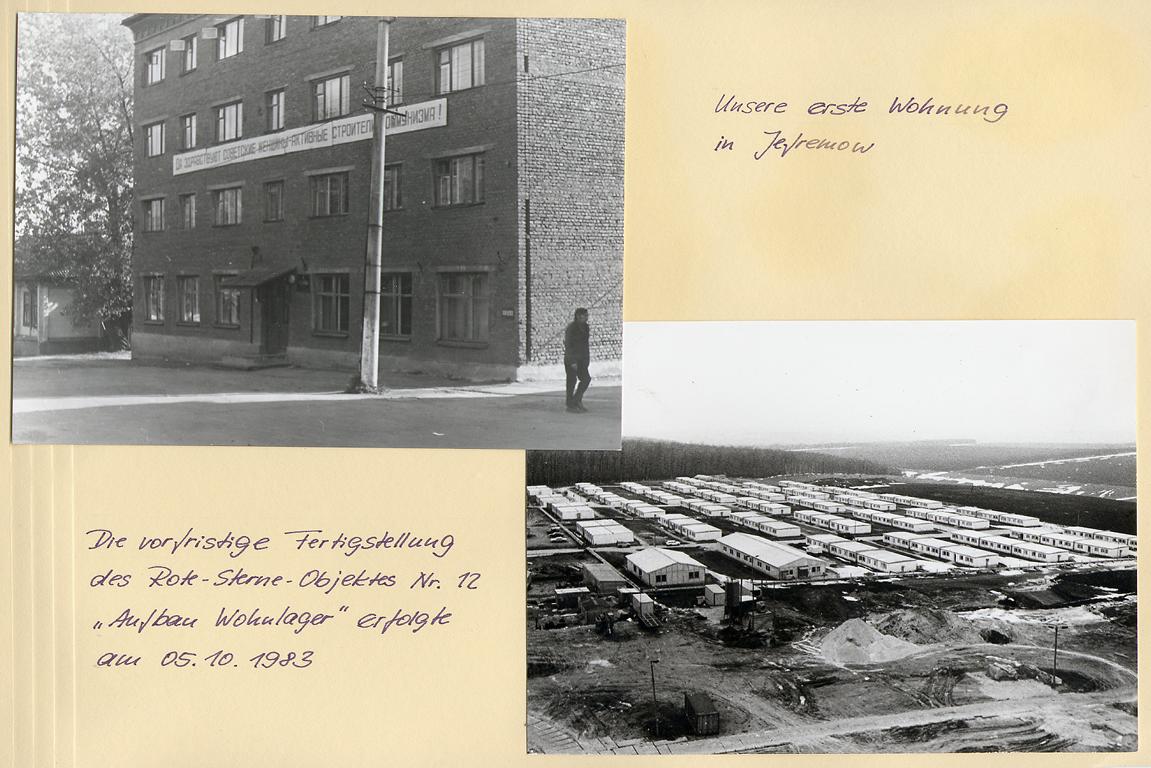 ДА ЗДРАВСТВУЮТ СОВЕТСКИЕ ЖЕНЩИНЫ-АКТИВНЫЕ СТРОИТЕЛИ КОММУНИЗМА!
Unsere erste Wohnung
in Jefremow
Die vorfristige Fertigstellung
des Rote-Sterne-Objektes Nr. 12
„Aufbau Wohnlager" erfolgte
am 05.10.1983